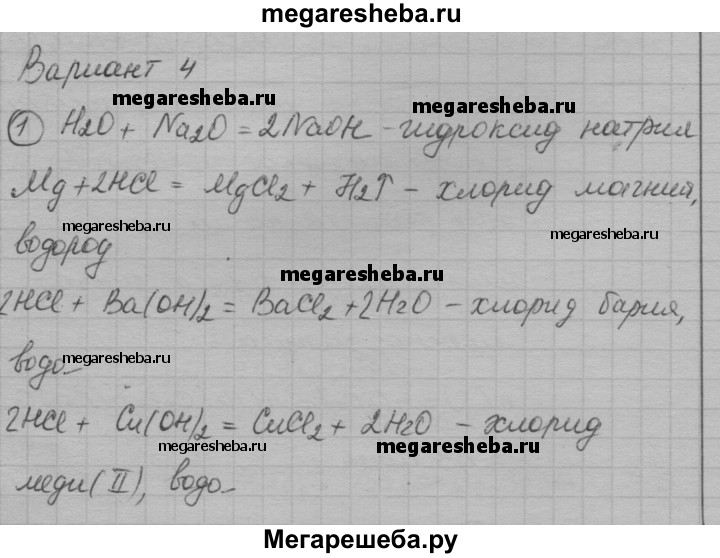 megaresheba.ru
Вариант 4
megaresheba.ru
megaresheba.ru
① H2O + Na2O = 2NaOH - гидроксид натрия
Mg + 2HCl = MgCl2 + H2↑ - хлорид магния,
megaresheba.ru
megaresheba.ru
водород
megaresheba.ru
2HCl + Ba(OH)2 = BaCl2 + 2H2O - хлорид бария,
megaresheba.ru
водо-
2HCl + Cu(OH)2 = CuCl2 + 2H2O - хлорид
megaresheba.ru
megaresheba.ru
меди(II), водо-
Мегарешеба.ру